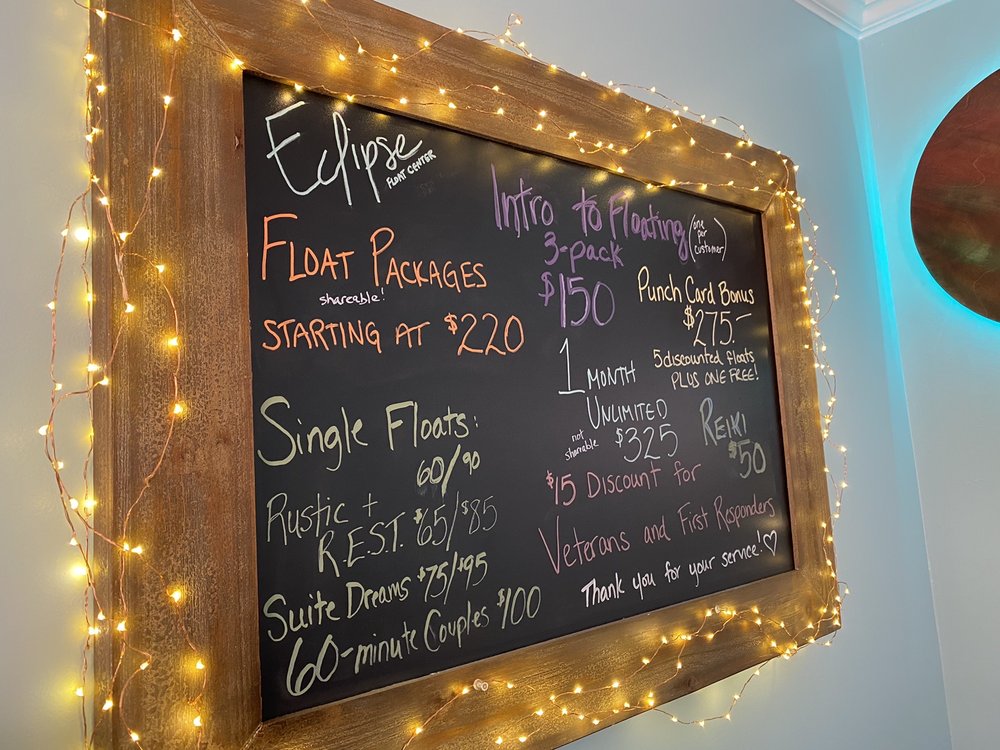 Eclipse
FLOAT CENTER
FLOAT PACKAGES
shareable!
STARTING AT $220
Single Floats:
60/90
Rustic +
R.E.S.T. $65/$85
Suite Dreams $75/$95
60-minute Couples $100
Intro to Floating (one per customer)
3-pack
$150
Punch Card Bonus
$275.-
5 discounted floats
PLUS ONE FREE!
1 MONTH
UNLIMITED
not shareable $325
REIKI
$50
$15 Discount for
Veterans and First Responders
Thank you for your service!♡